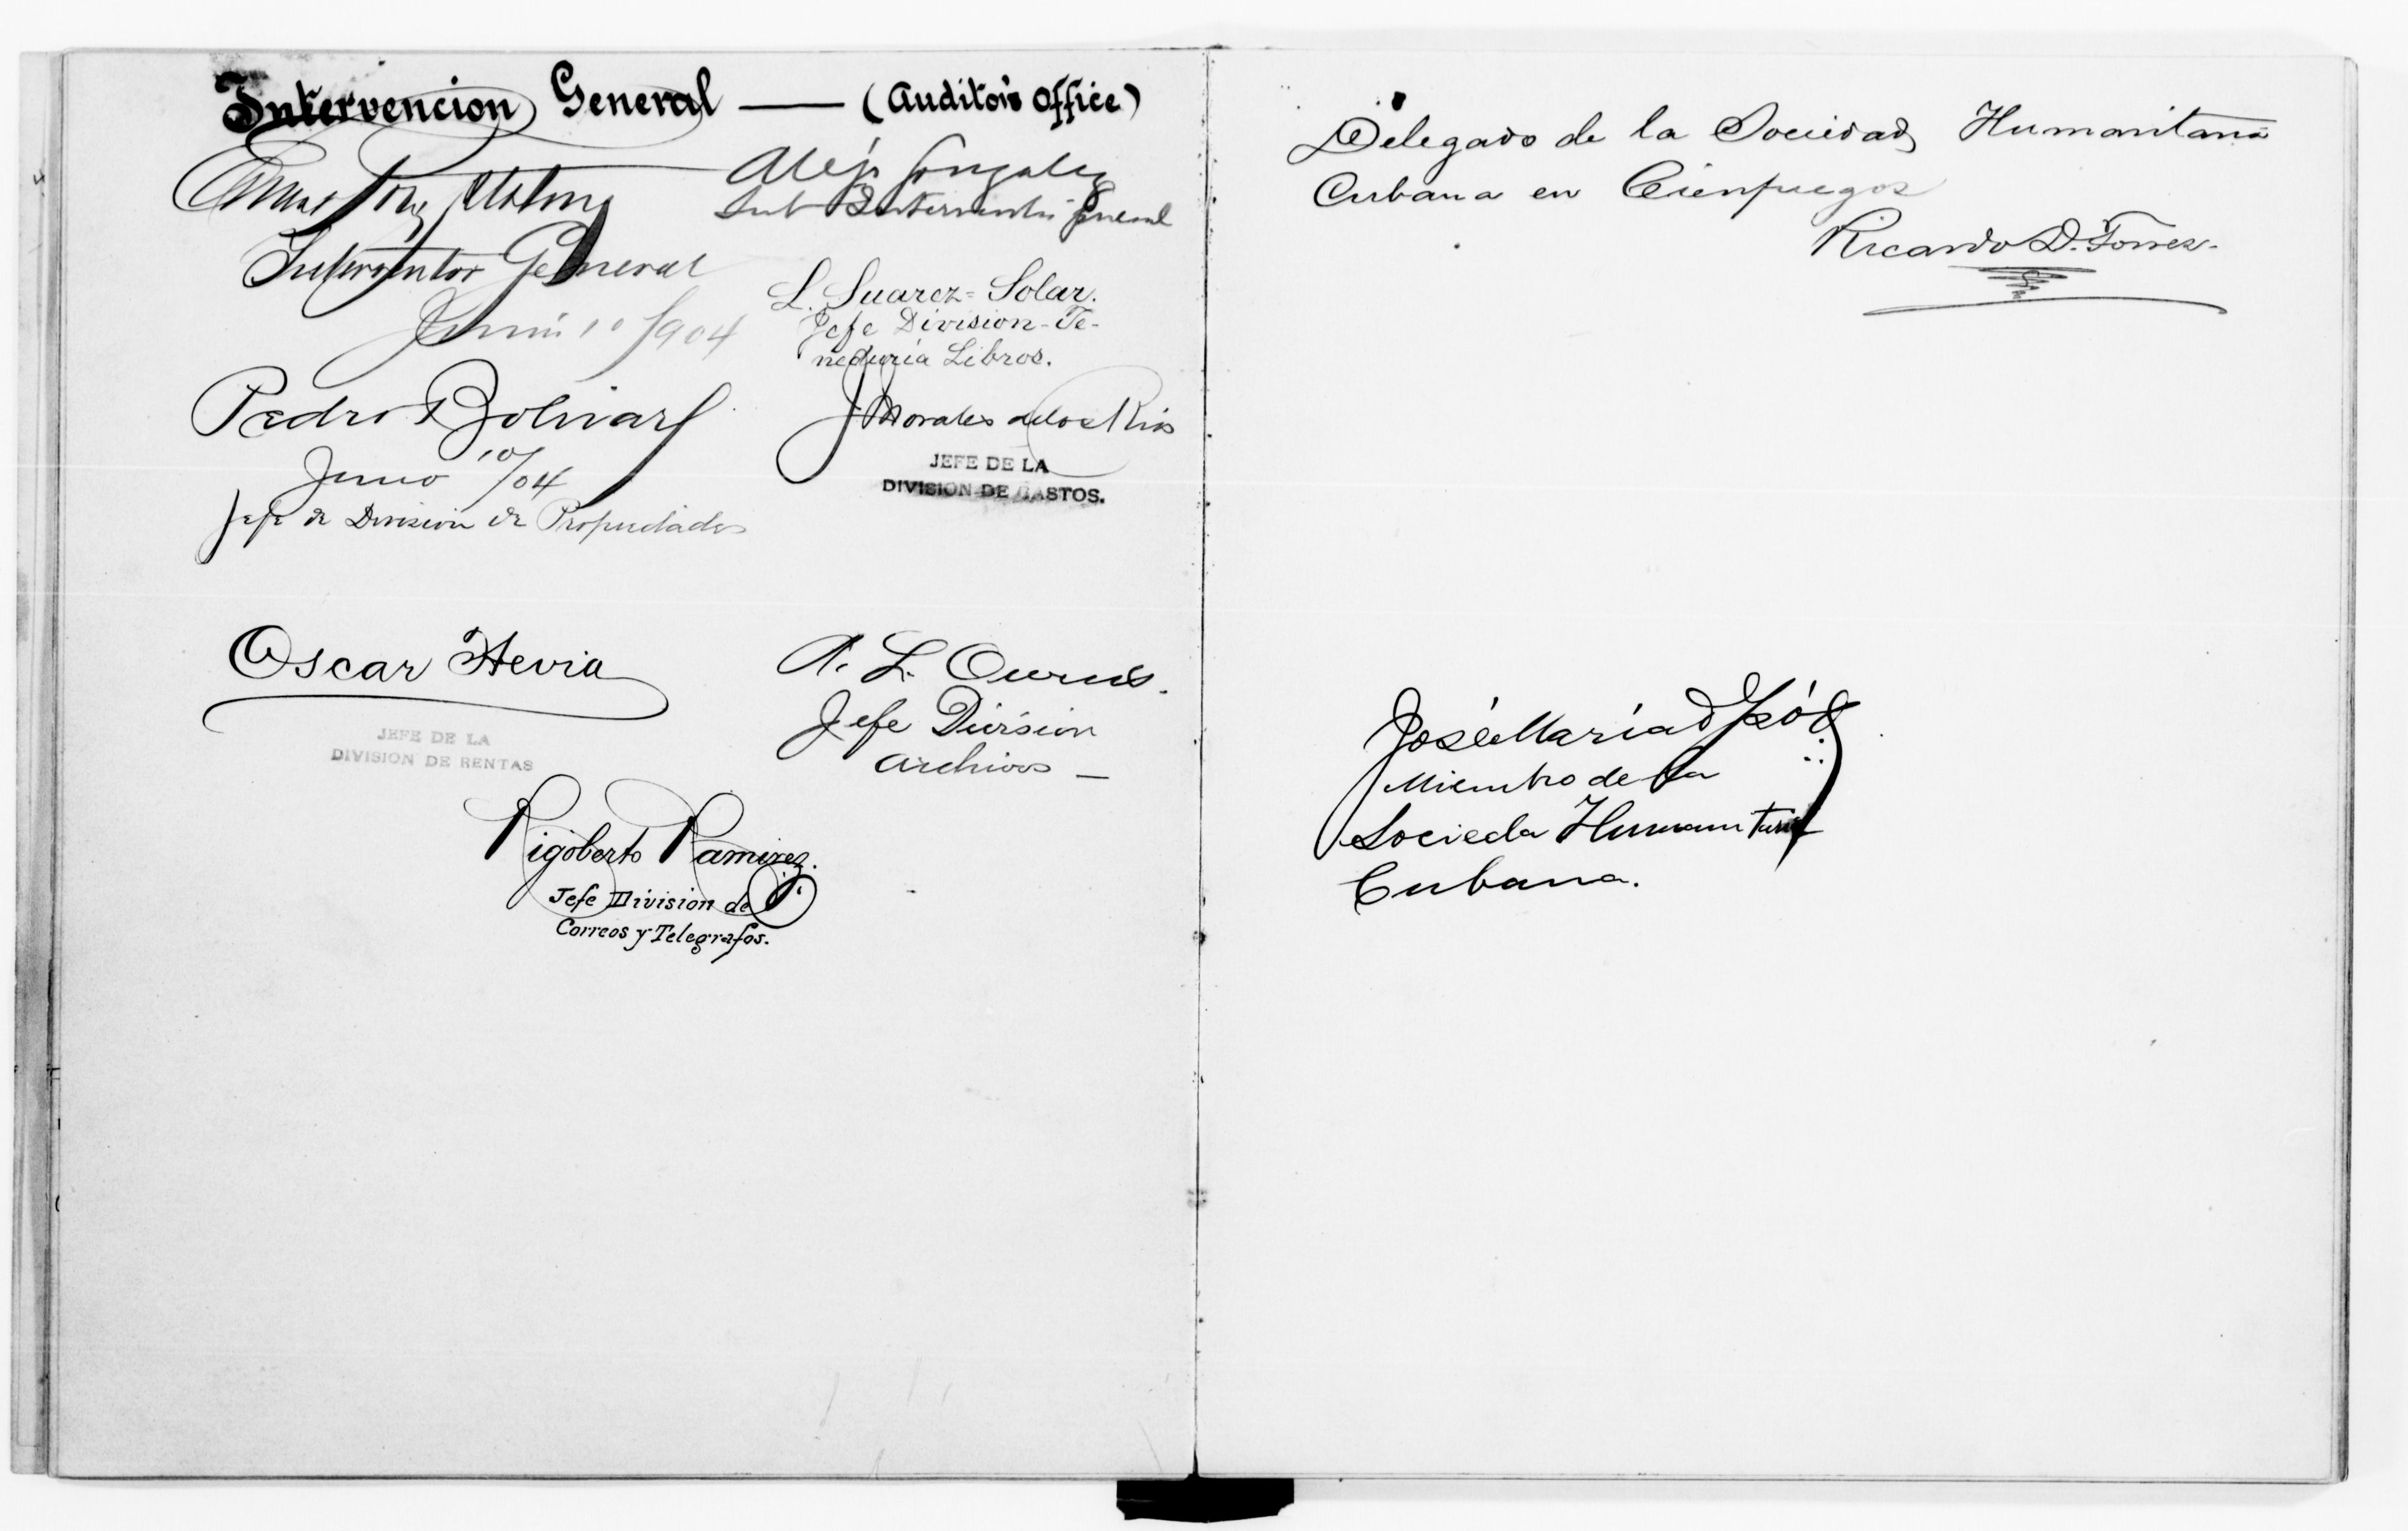 Intervencion General — (Auditor's Office)
Interventor General
Junio 10/904
Alejo Gonzalez
Sub Interventor General
L. Suarez-Solar.
Jefe Division-Te-
neduria Libros.
Pedro Bolivar
Junio 10/04
Jefe de Division de Propiedades
J Morales de los Rios
JEFE DE LA
DIVISION DE GASTOS.
Oscar Hevia
JEFE DE LA
DIVISION DE RENTAS
A. L.
Jefe Division
Archivos —
Rigoberto Ramirez.
Jefe Division de
Correos y Telegrafos.
Delegado de la Sociedad Humanitaria
Cubana en Cienfuegos
Ricardo D. Torres.
José Maria
Miembro de la
Socieda Humanitaria
Cubana.